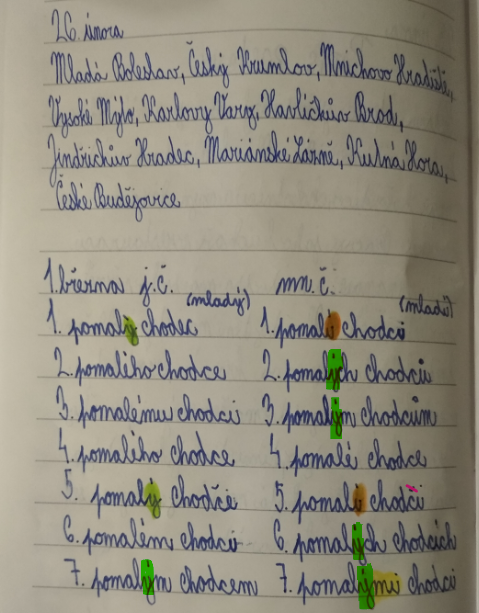 26. února
Mladá Boleslav, Český Krumlov, Mnichovo Hradiště,
Vysoké Mýto, Karlovy Vary, Havlíčkův Brod,
Jindřichův Hradec, Mariánské Lázně, Kutná Hora,
České Budějovice
1. března j.č. mn.č.
(mladý) (mladí)
1. pomalý chodec 1. pomalí chodci
2. pomalého chodce 2. pomalých chodců
3. pomalému chodci 3. pomalým chodcům
4. pomalého chodce 4. pomalé chodce
5. pomalý chodče 5. pomalí chodči
6. pomalém chodci 6. pomalých chodcích
7. pomalým chodcem 7. pomalými chodci